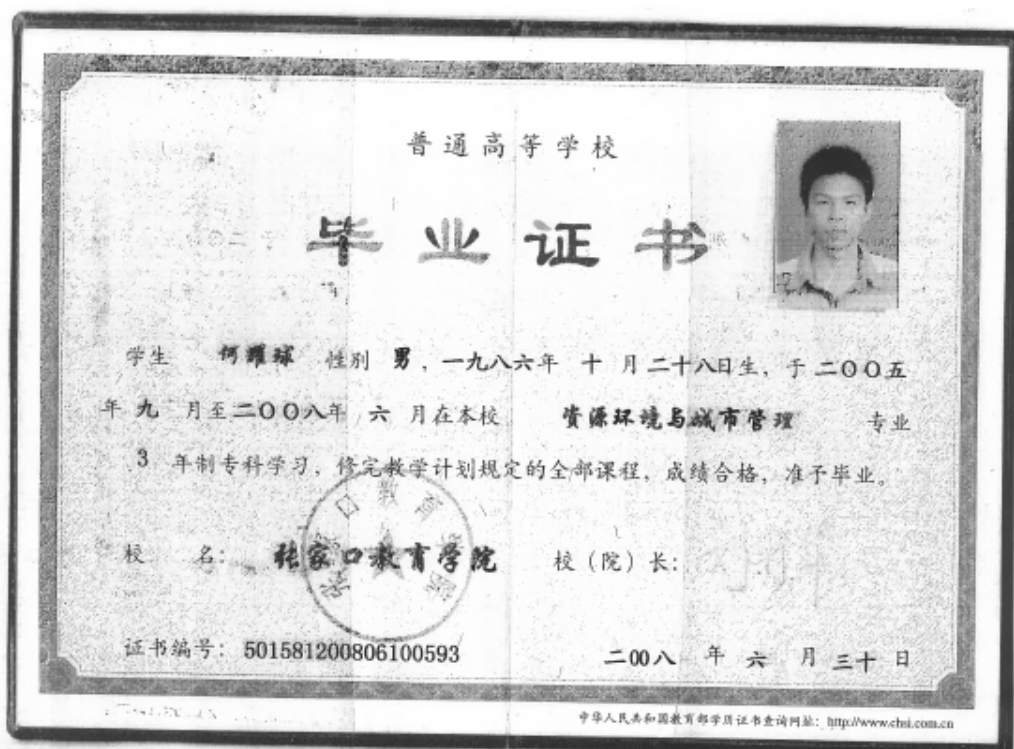 普通高等学校
毕业证书
学生 何耀球 性别 男，一九八六年 十 月 二十八日生，于 二〇〇五
年 九 月至二〇〇八年 六 月在本校 资源环境与城市管理 专业
3 年制专科学习，修完教学计划规定的全部课程，成绩合格，准予毕业。
校 名： 张家口教育学院 校（院）长：
证书编号：501581200806100593 二00八 年 六 月 三十 日
中华人民共和国教育部学历证书查询网址：http://www.chsi.com.cn